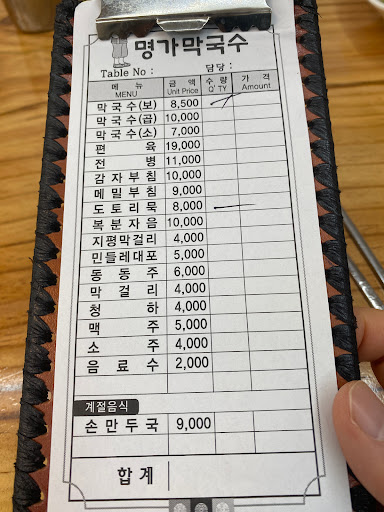 명가막국수
Table No : 담당 :
메 뉴 MENU 금 액 Unit Price 수 량 Q' TY 가 격 Amount
막국수(보) 8,500
막국수(곱) 10,000
막국수(소) 7,000
편 육 19,000
전 병 11,000
감자부침 10,000
메밀부침 9,000
도토리묵 8,000
복분자음 10,000
지평막걸리 4,000
민들레대포 5,000
동 동 주 6,000
막 걸 리 4,000
청 하 4,000
맥 주 5,000
소 주 4,000
음 료 수 2,000
계절음식
손만두국 9,000
합 계